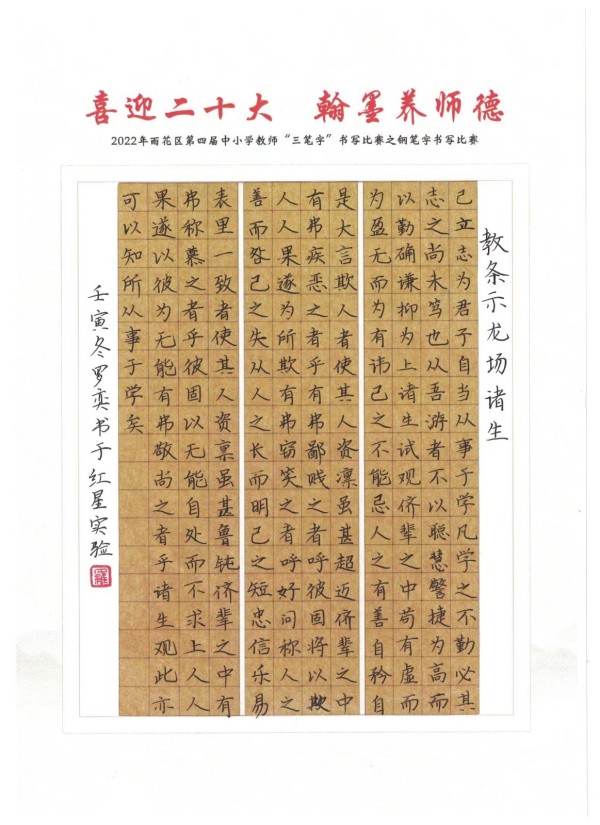 喜迎二十大 翰墨养师德
2022年雨花区第四届中小学教师“三笔字”书写比赛之钢笔字书写比赛
教条示龙场诸生
己立志为君子自当从事于学凡学之不勤必其
志之尚未笃也从吾游者不以聪慧警捷为高而
以勤确谦抑为上诸生试观侪辈之中苟有虚而
为盈无而为有讳己之不能忌人之有善自矜自
是大言欺人者使其人资凛虽甚超迈侪辈之中
有弗疾恶之者乎有弗鄙贱之者呼彼固将以欺
人人果遂为所欺有弗窃笑之者呼好问称人之
善而咎己之失从人之长而明己之短忠信乐易
表里一致者使其人资禀虽甚鲁钝侪辈之中有
弗称慕之者乎彼固以无能自处而不求上人人
果遂以彼为无能有弗敬尚之者乎诸生观此亦
可以知所从事于学矣
壬寅冬罗奕书于红星实验